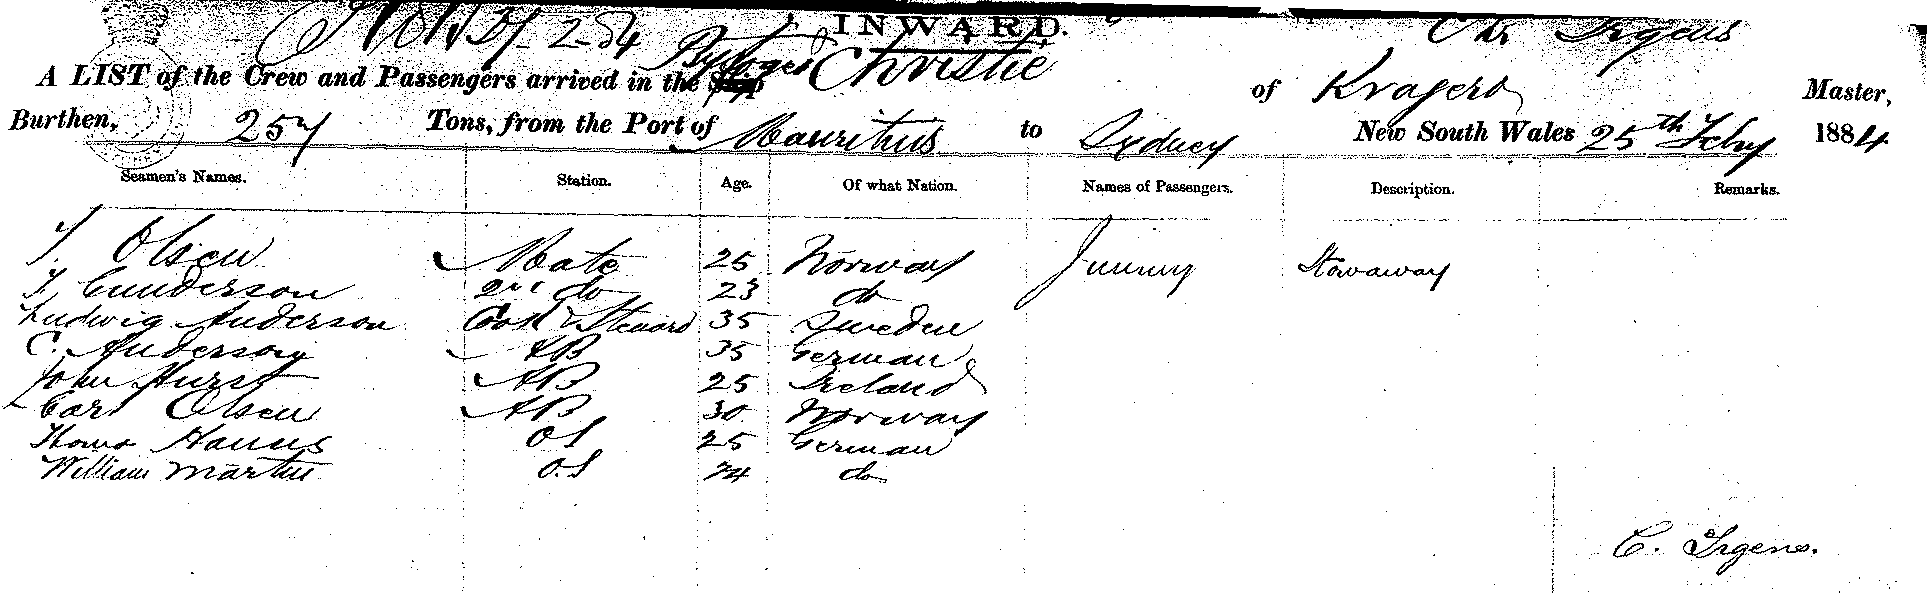 INWARD.
Chr Irgens
A LIST of the Crew and Passengers arrived in the Christie of Kragero Master,
Burthen, 257 Tons, from the Port of Mauritius to Sydney New South Wales 25th Feby 1884
Seamen's Names. Station. Age. Of what Nation. Names of Passengers. Description. Remarks.
T. Olsen Mate 25 Norway Jummy Stowaway
T. Gunderson 2nd do 23 do
Ludwig Anderson Cook & Steward 35 Sweden
C. Anderson AB 35 German
John Hurst AB 25 Ireland
Carl Olsen AB 30 Norway
Hanns OS 25 German
William Martin O.S 24 do
C. Irgens.